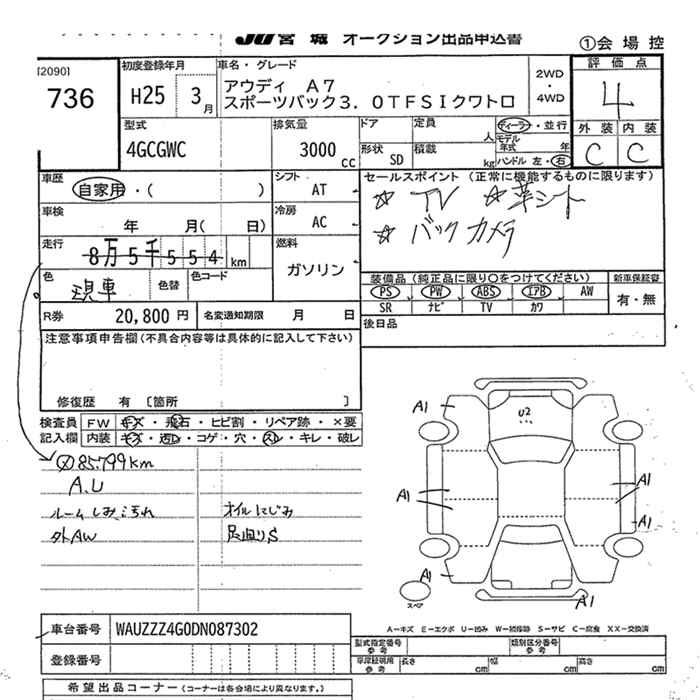 JU 宮 城 オークション出品申込書
①会 場 控
[2090]
736
初度登録年月
H25 3月
車名・グレード
アウディ A7
スポーツバック3.0TFSIクワトロ
2WD
・
4WD
評 価 点
4
外 装 内 装
C C
型式
4GCGWC
排気量
3000 cc
ドア
定員
人
形状 SD
積載
kg
ディーラー・並行
モデル
年式 年
ハンドル 左・右
車歴
自家用・( )
シフト AT
車検
年 月( 日)
冷房 AC
走行
8万5千554 km
燃料
ガソリン
色
現車
色替
色コード
R券 20,800 円
名変通知期限 月 日
セールスポイント (正常に機能するものに限ります)
☆ TV ☆革シート
☆ バックカメラ
装備品(純正品に限り〇をつけてください)
新車保証書
PS PW ABS エアB AW
SR ナビ TV カワ
有・無
後日品
注意事項申告欄(不具合内容等は具体的に記入して下さい)
修復歴 有 〔箇所 〕
検査員
記入欄
FW キズ・飛石・ヒビ割・リペア跡・×要
内装 キズ・汚レ・コゲ・穴・スレ・キレ・破レ
85.799km
A.U
ルームしみ、汚れ オイルにじみ
外AW 足回りS
A1
U2
A1
A1
A1
A1
A1
スペア
A1
A-キズ E-エクボ U-凹み W-補修跡 S-サビ C-腐食 XX-交換済
車台番号 WAUZZZ4G0DN087302
登録番号
型式指定番号
参 考
類別区分番号
参 考
車庫証明用
参 考
長さ cm 幅 cm 高さ cm
希望出品コーナー(コーナーは各会場により異なります。)